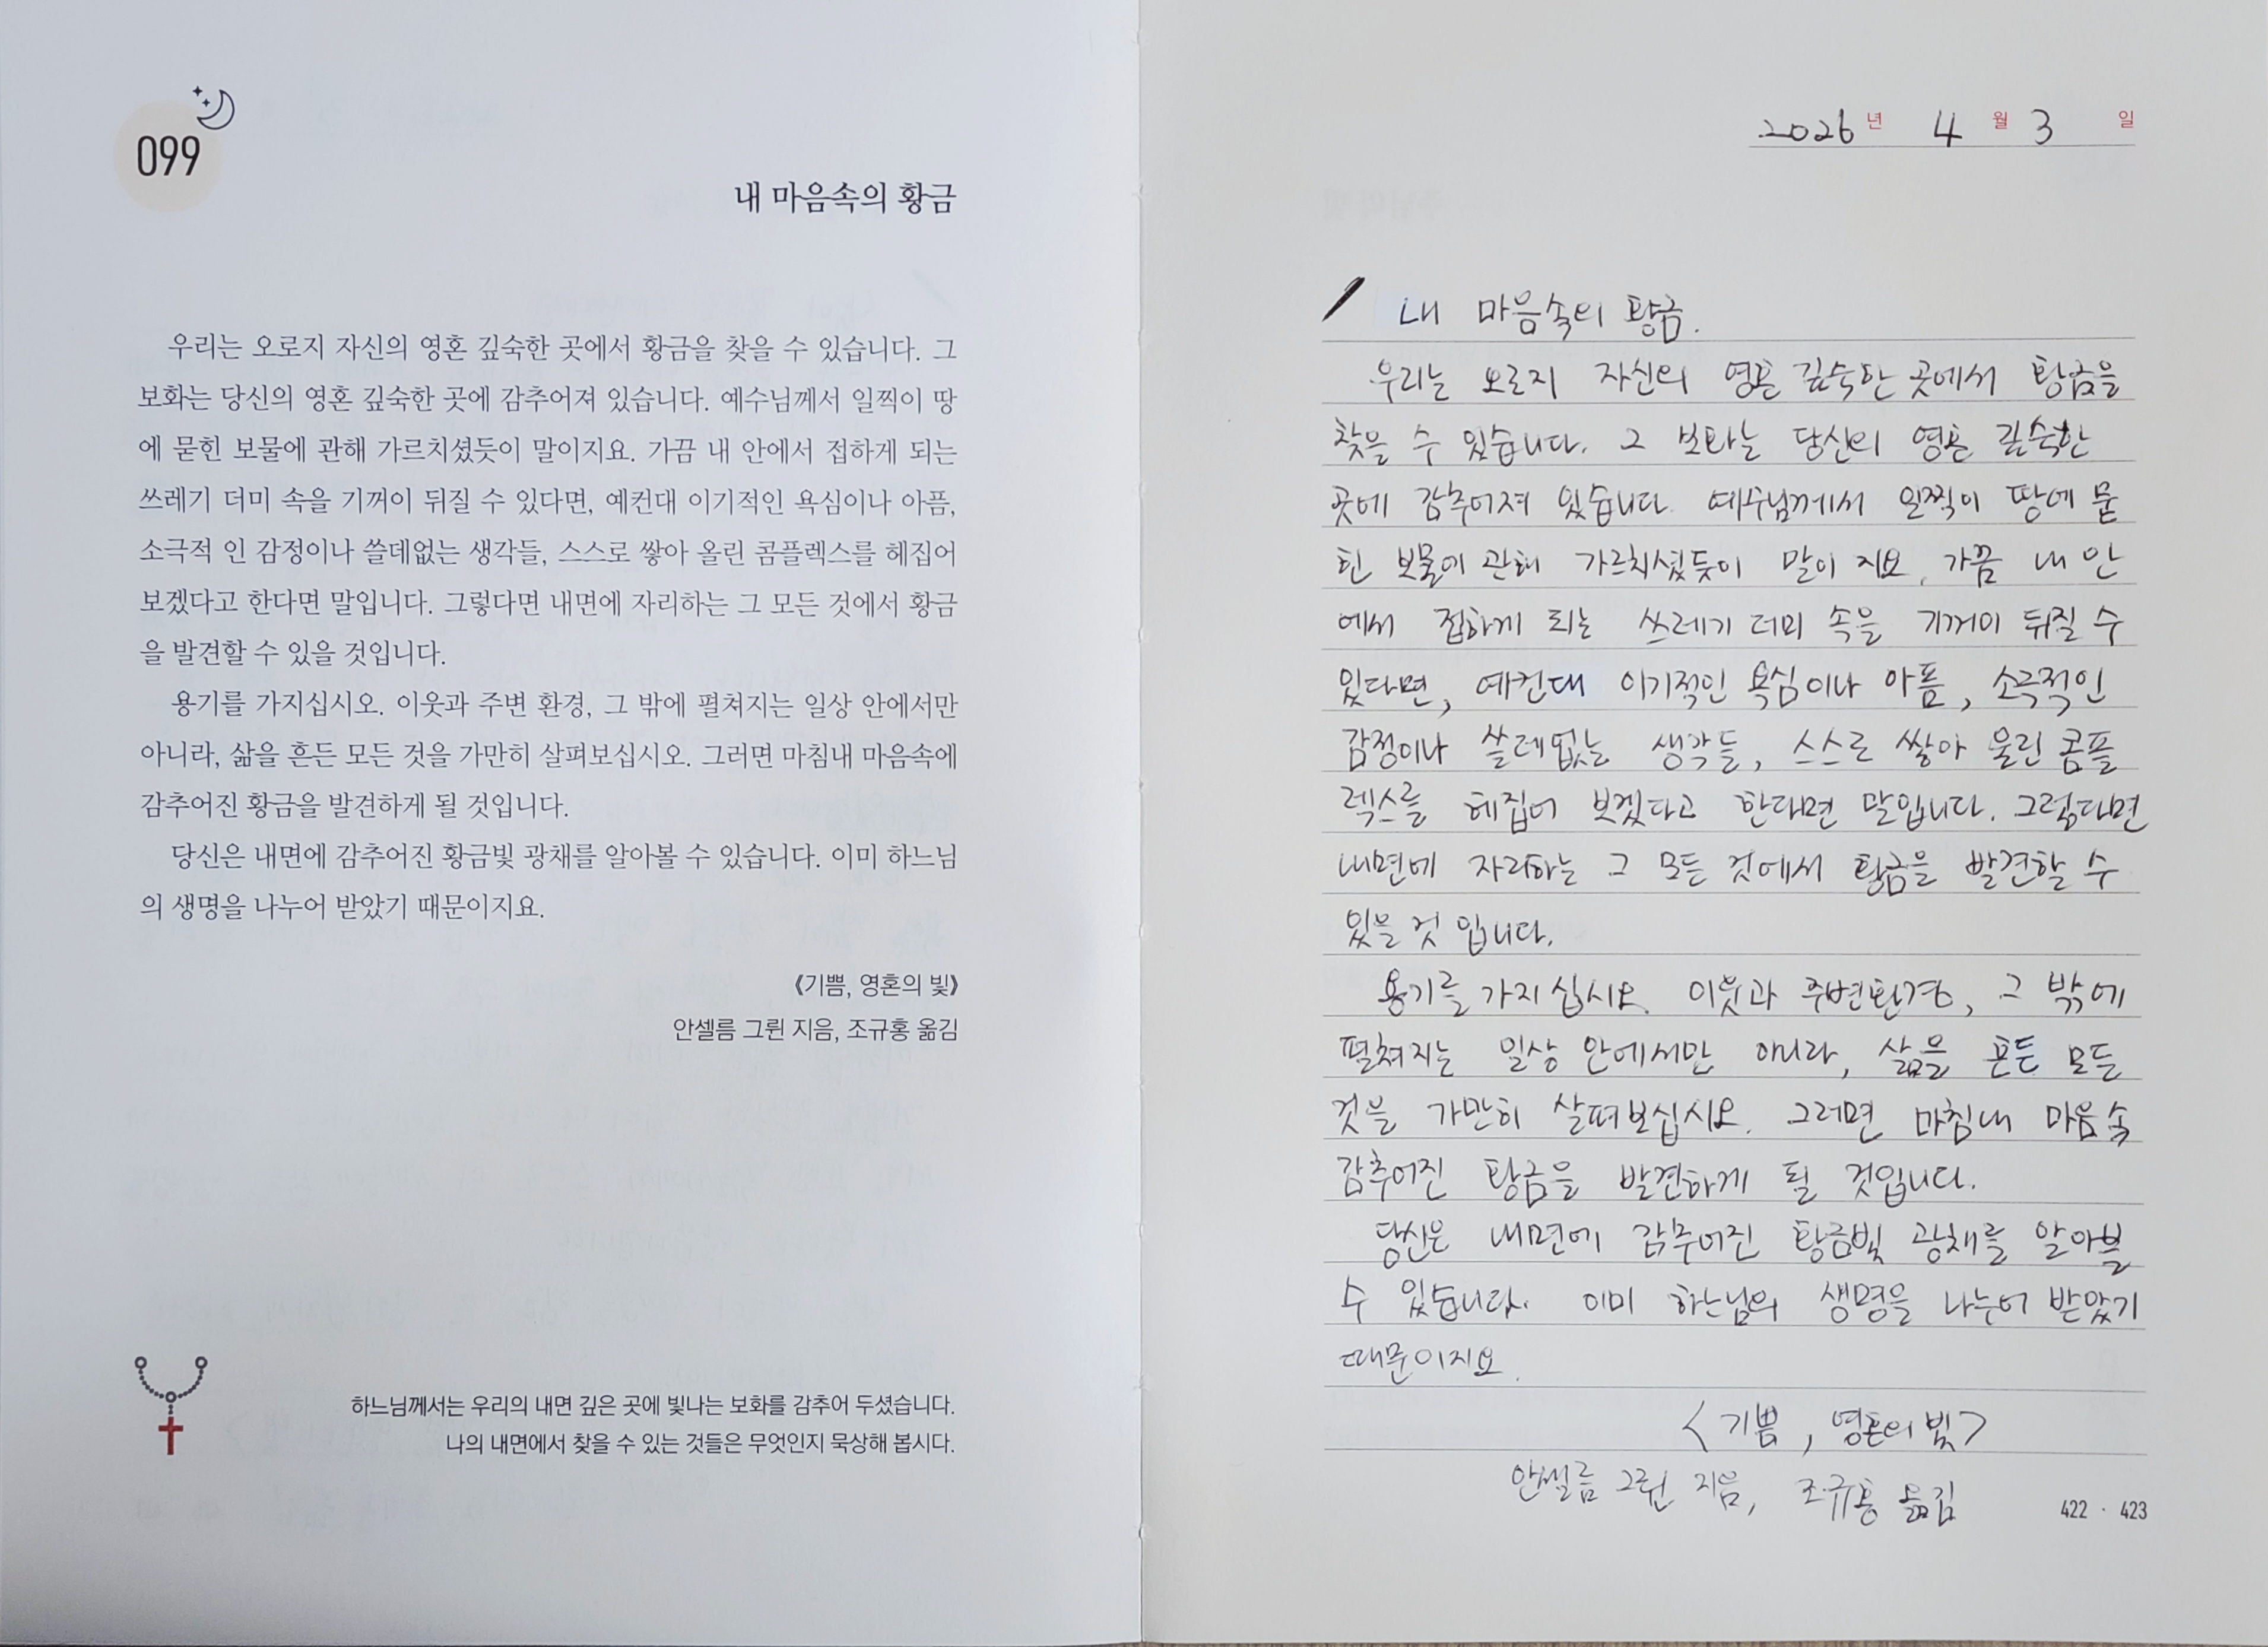 099
내 마음속의 황금
우리는 오로지 자신의 영혼 깊숙한 곳에서 황금을 찾을 수 있습니다. 그
보화는 당신의 영혼 깊숙한 곳에 감추어져 있습니다. 예수님께서 일찍이 땅
에 묻힌 보물에 관해 가르치셨듯이 말이지요. 가끔 내 안에서 접하게 되는
쓰레기 더미 속을 기꺼이 뒤질 수 있다면, 예컨대 이기적인 욕심이나 아픔,
소극적 인 감정이나 쓸데없는 생각들, 스스로 쌓아 올린 콤플렉스를 헤집어
보겠다고 한다면 말입니다. 그렇다면 내면에 자리하는 그 모든 것에서 황금
을 발견할 수 있을 것입니다.
용기를 가지십시오. 이웃과 주변 환경, 그 밖에 펼쳐지는 일상 안에서만
아니라, 삶을 흔든 모든 것을 가만히 살펴보십시오. 그러면 마침내 마음속에
감추어진 황금을 발견하게 될 것입니다.
당신은 내면에 감추어진 황금빛 광채를 알아볼 수 있습니다. 이미 하느님
의 생명을 나누어 받았기 때문이지요.
《기쁨, 영혼의 빛》
안셀름 그륀 지음, 조규홍 옮김
하느님께서는 우리의 내면 깊은 곳에 빛나는 보화를 감추어 두셨습니다.
나의 내면에서 찾을 수 있는 것들은 무엇인지 묵상해 봅시다.
2026 년 4 월 3 일
내 마음속의 황금.
우리는 오로지 자신의 영혼 깊숙한 곳에서 황금을
찾을 수 있습니다. 그 보화는 당신의 영혼 깊숙한
곳에 감추어져 있습니다. 예수님께서 일찍이 땅에 묻
힌 보물에 관해 가르치셨듯이 말이 지요. 가끔 내 안
에서 접하게 되는 쓰레기 더미 속을 기꺼이 뒤질 수
있다면, 예컨대 이기적인 욕심이나 아픔, 소극적인
감정이나 쓸데없는 생각들, 스스로 쌓아 올린 콤플
렉스를 헤집어 보겠다고 한다면 말입니다. 그렇다면
내면에 자리하는 그 모든 것에서 황금을 발견할 수
있을 것 입니다.
용기를 가지십시오. 이웃과 주변환경, 그 밖에
펼쳐지는 일상 안에서만 아니라, 삶을 흔든 모든
것을 가만히 살펴보십시오. 그러면 마침내 마음속
감추어진 황금을 발견하게 될 것입니다.
당신은 내면에 감추어진 황금빛 광채를 알아볼
수 있습니다. 이미 하느님의 생명을 나누어 받았기
때문이지요.
<기쁨, 영혼의 빛>
안셀름 그륀 지음, 조규홍 옮김
422 · 423